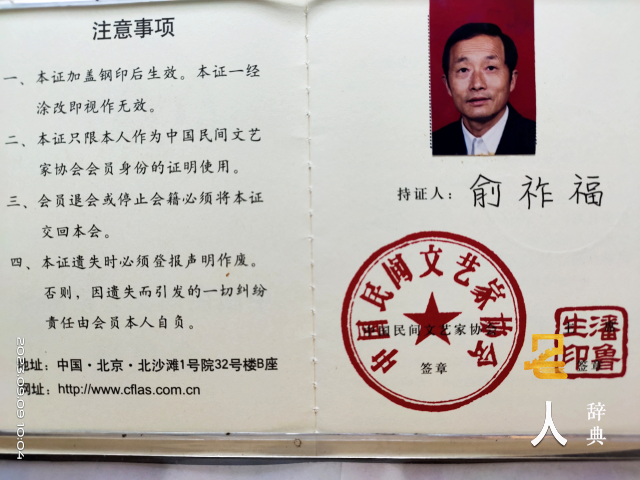 注意事项
一、本证加盖钢印后生效。本证一经
涂改即视作无效。
二、本证只限本人作为中国民间文艺
家协会会员身份的证明使用。
三、会员退会或停止会籍必须将本证
交回本会。
四、本证遗失时必须登报声明作废。
否则，因遗失而引发的一切纠纷
责任由会员本人自负。
地址：中国·北京·北沙滩1号院32号楼B座
网址：http://www.cflas.com.cn
持证人：俞祚福
中国民间文艺家协会
中国民间文艺家协会
签章
潘鲁生印
签章
人
辞典